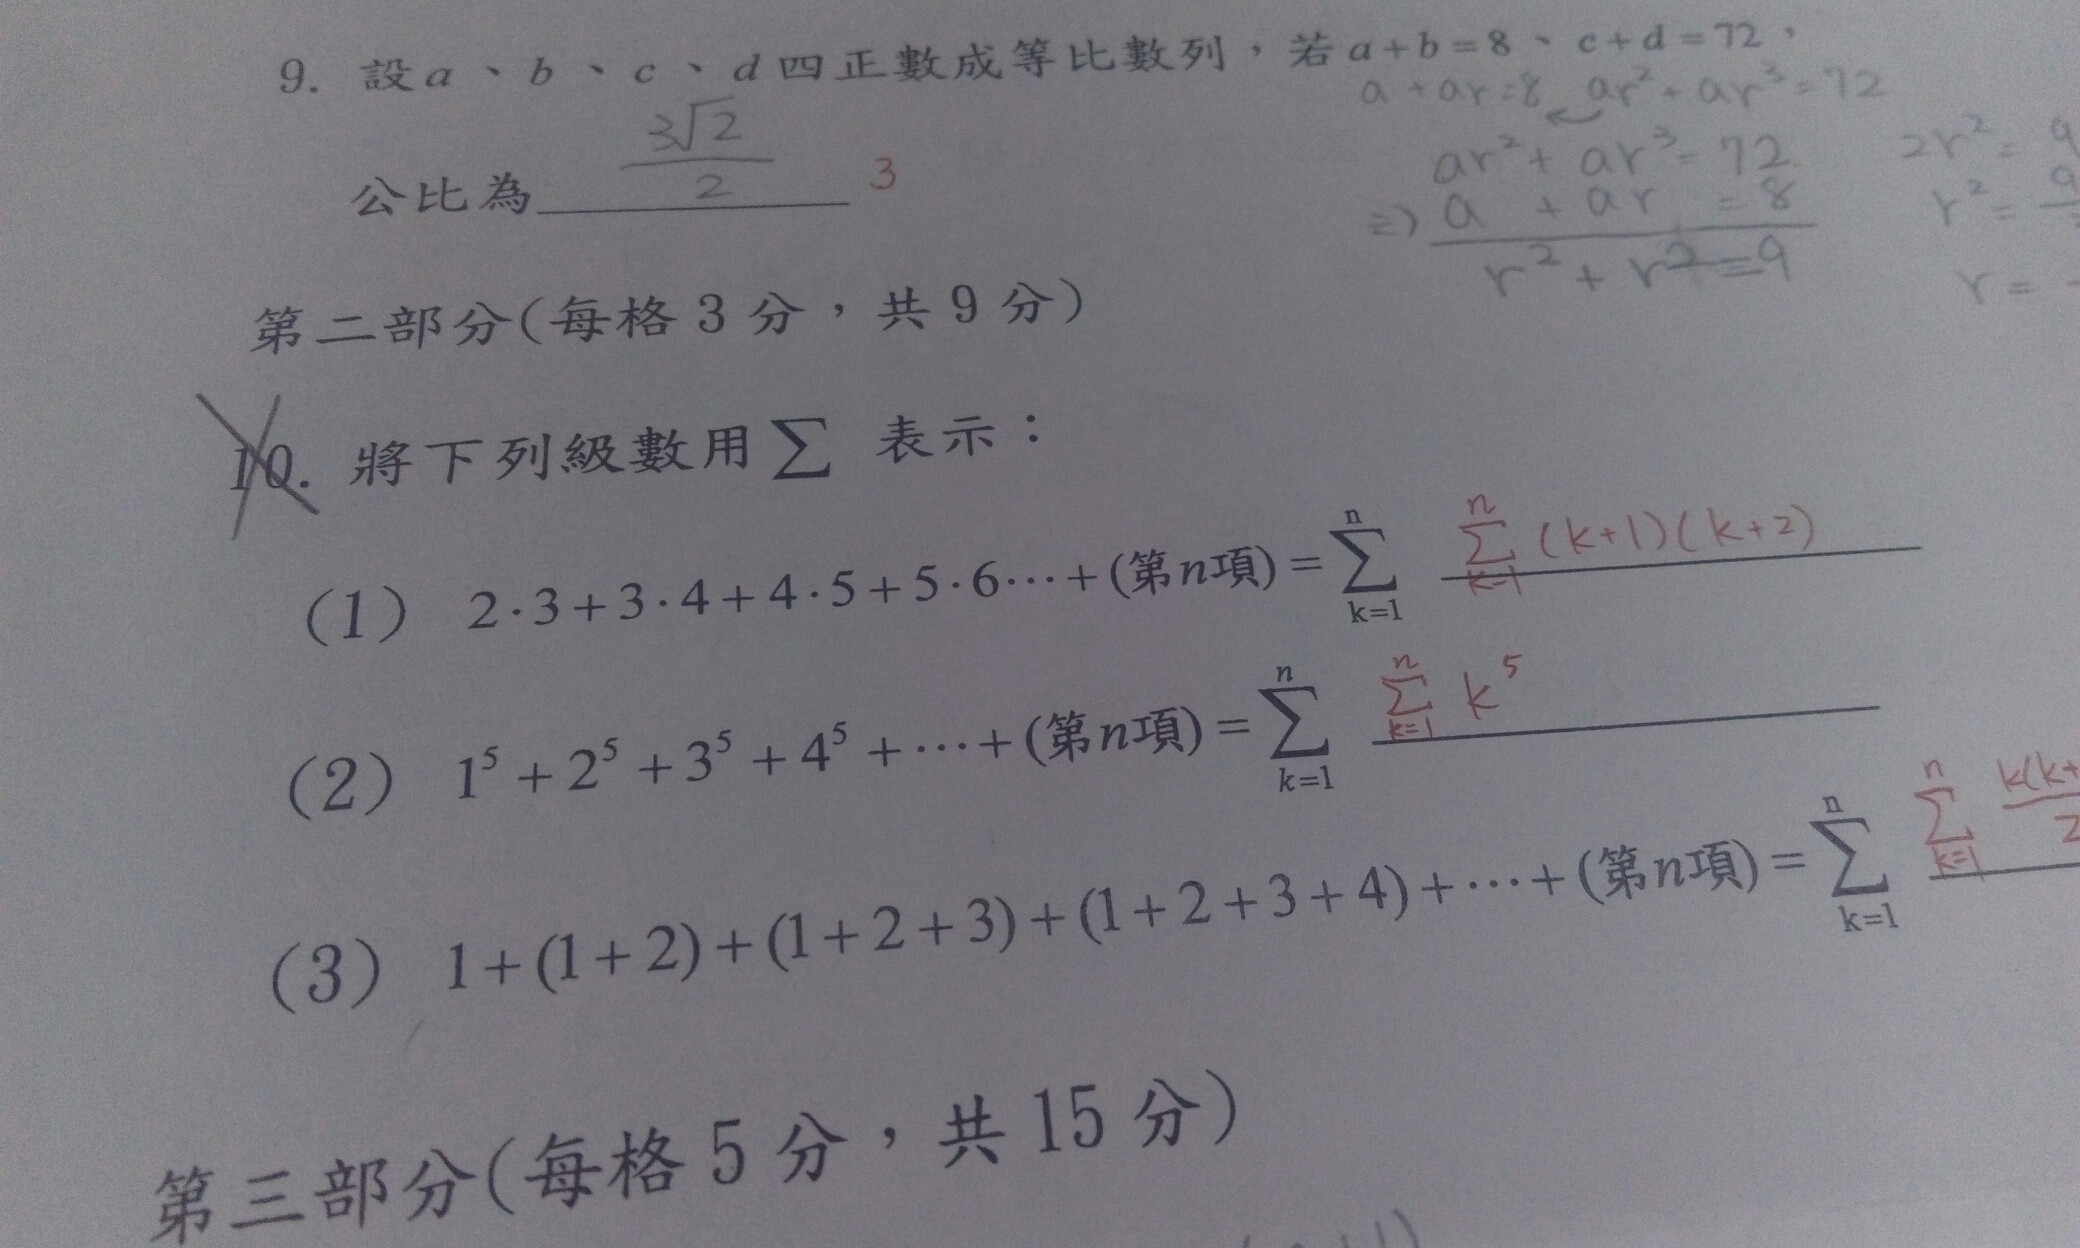 9. 設a、b、c、d四正數成等比數列，若a+b=8、c+d=72，
a+ar=8 ar²+ar³=72
公比為 3√2/2 3
ar²+ar³=72
÷) a+ar=8
r²+r²=9
2r²=9
r²=9
r=
第二部分(每格3分，共9分)
10. 將下列級數用∑ 表示：
(1) 2·3+3·4+4·5+5·6⋯+(第n項)=∑ₖ₌₁ⁿ ∑ₖ₌₁ⁿ (k+1)(k+2)
(2) 1⁵+2⁵+3⁵+4⁵+⋯+(第n項)=∑ₖ₌₁ⁿ ∑ₖ₌₁ⁿ k⁵
(3) 1+(1+2)+(1+2+3)+(1+2+3+4)+⋯+(第n項)=∑ₖ₌₁ⁿ ∑ₖ₌₁ⁿ k(k+ / 2
第三部分(每格5分，共15分)